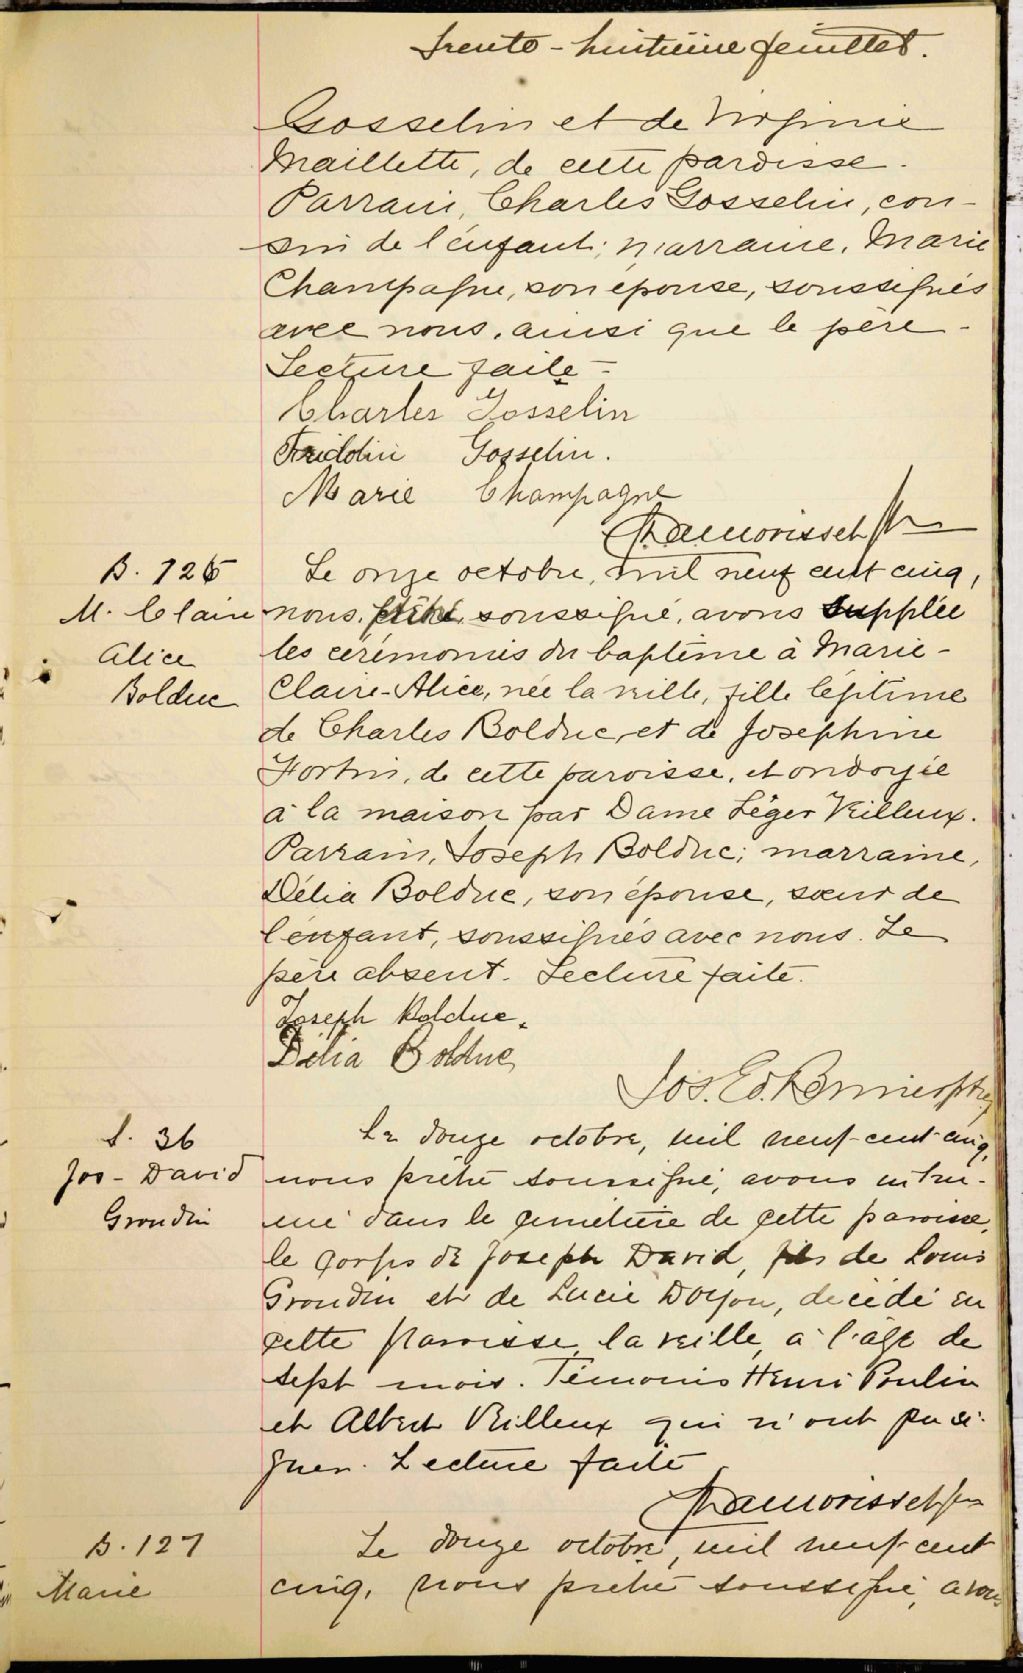 Trente-huitième feuillet.
Gosselin et de Virginie
Maillette, de cette paroisse.
Parrain, Charles Gosselin, cou-
sin de l'enfant; marraine, Marie
Champagne, son épouse, soussignés
avec nous, ainsi que le père -
Lecture faite -
Charles Gosselin
Fridolin Gosselin.
Marie Champagne
B. 126
M. Claire
Alice
Bolduc
Le onze octobre, mil neuf cent cinq,
nous, prêtre, soussigné, avons supplée
les cérémonies du baptême à Marie-
Claire-Alice, née la veille, fille légitime
de Charles Bolduc, et de Josephine
Fortin, de cette paroisse, et ondoyée
à la maison par Dame Léger Veilleux.
Parrain, Joseph Bolduc; marraine,
Délia Bolduc, son épouse, sœur de
l'enfant, soussignés avec nous. Le
père absent. Lecture faite.
Joseph Bolduc.
Délia Bolduc
Jos. Ed. Bernier ptre
S. 36
Jos-David
Grondin
Le douze octobre, mil neuf-cent-cinq,
nous prêtre soussigné, avons inhu-
mé dans le cimetière de cette paroisse,
le corps de Joseph David, fils de Louis
Grondin et de Lucie Doyon, décédé en
cette paroisse, la veille, à l'âge de
sept mois. Témoins Henri Poulin
et Albert Veilleux qui n'ont pu si-
gner. Lecture faite
B. 127
Marie
Le douze octobre, mil neuf cent
cinq, nous prêtre soussigné, avons